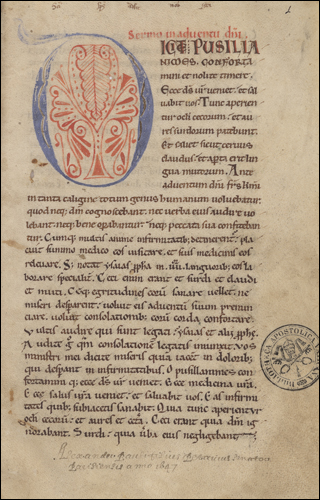 Sermo in adventu dñi
DICITE PUSILLA
NIMES. CONFORTA
mini et nolite timere.
Ecce d̄s v̄r veniet. et sal
vabit vos. Tunc aperien
tur oculi cecorum. et au
res surdorum patebunt.
Et saliet sicut cervus
claudus. et aperta erit lin
gua mutorum. Ante
adventum dñi frs kmi
in tanta caligine totum genus humanum volvebatur.
quod neq; dm̄ cognoscebant. nec verba eius audire vo
lebant. neq; bene operabantur neq; peccata sua confiteban
tur. Cumq; multis anime infirmitatib; detinerent. pla
cuit summo medico eos visitare. et suis medicinis eos
relevare.
borare speciali. Ceci enim erant et surdi et claudi
et muti. Cumq; egritudines eorum sanare vellet. ne
miseri desperarent. voluit eis adventum suum prenun
ciare. voluit consolationib; eorum corda confortare.
Vultis audire qui sunt legati. ysaias et alii pphe.
Audite q̄ qm̄ consolatione legatis iniunxit. vos
ministri mei dicite miseris qui iacent in dolorib;
qui desperant in infirmitatibus. O pusillanimes con
fortamini q; ecce d̄s v̄r veniet. Ecce medicina v̄ra.
Ecce salus v̄ra veniet. et salvabit vos. Et ab infirmi
tatib; quib; subiacetis sanabit. Quia tunc aperientur
oculi cecorum. et aures et cetera. Ceci erant quia dm̄ ig
norabant. Surdi. quia verba eius negligebant
Alexander Pauli Petavius
anno 1647
BIBLIOTECA APOSTOLICA